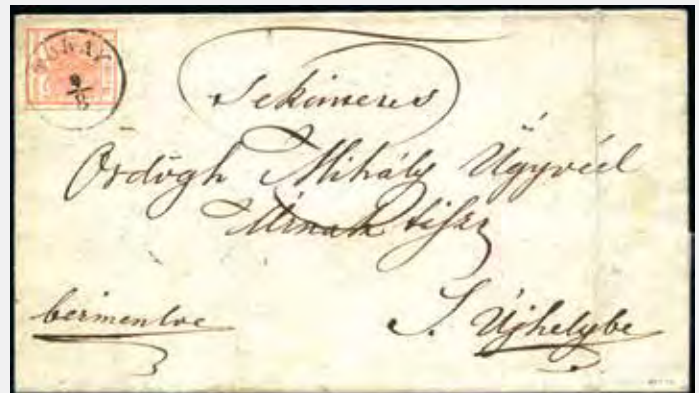 TOKAY
9/6
Tekintetes
Ördögh Mihály Ügyvéd
Úrnak tisz
bérmentve
S. Újhelybe